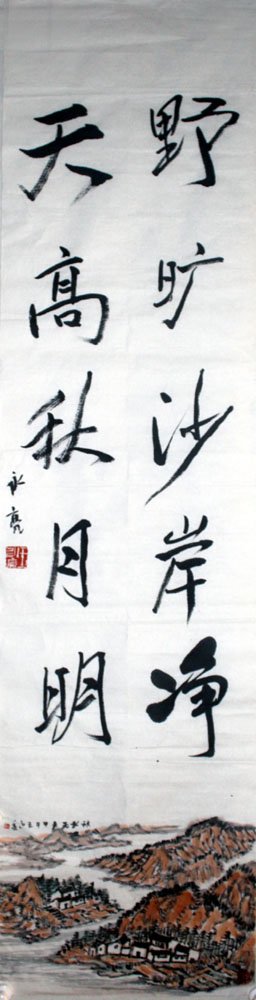 野旷沙岸净
天高秋月明
永亮